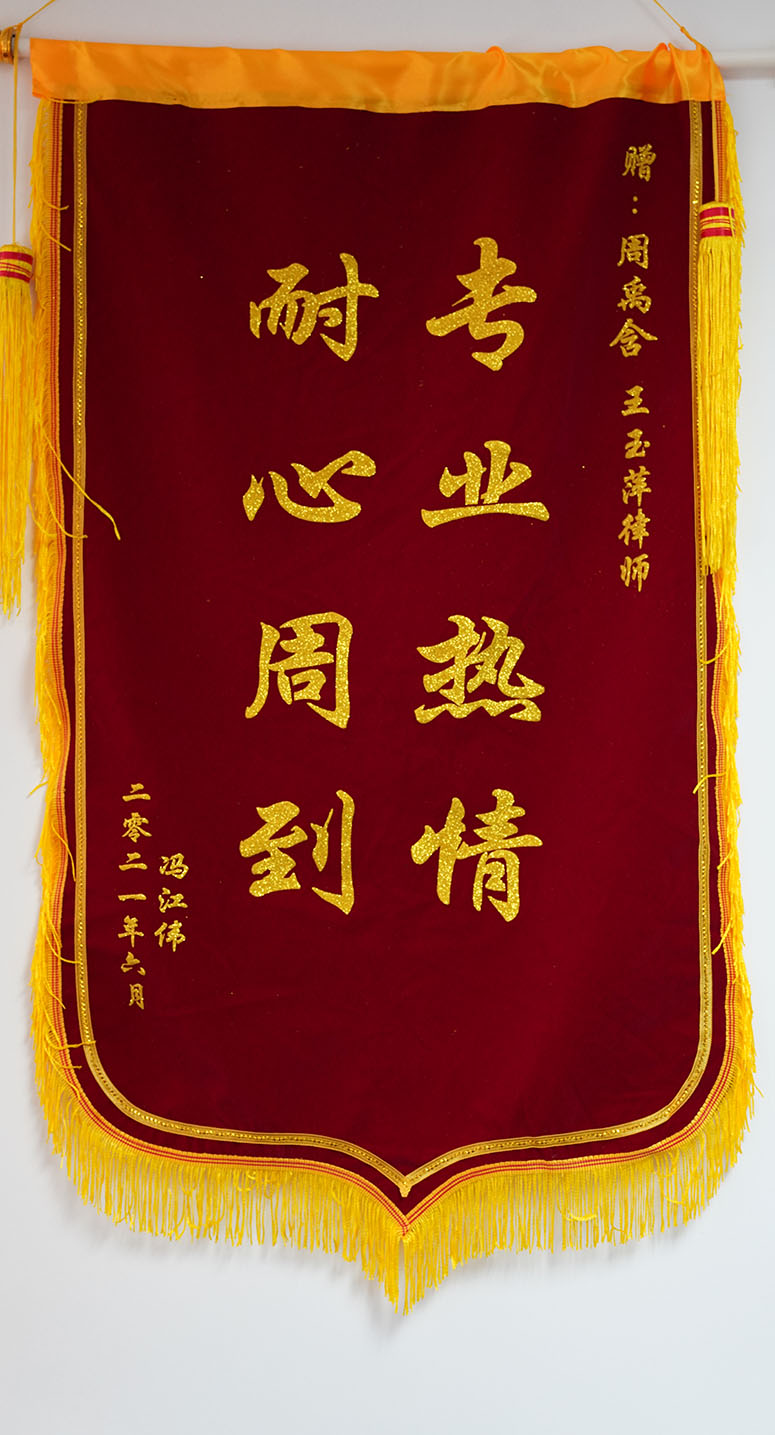 赠：周禹含 王玉萍律师
专业热情
耐心周到
冯江伟
二零二一年六月